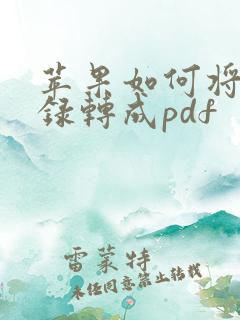 苹果如何将
録轉成pdf
雷蒙特
未经同意禁止转载